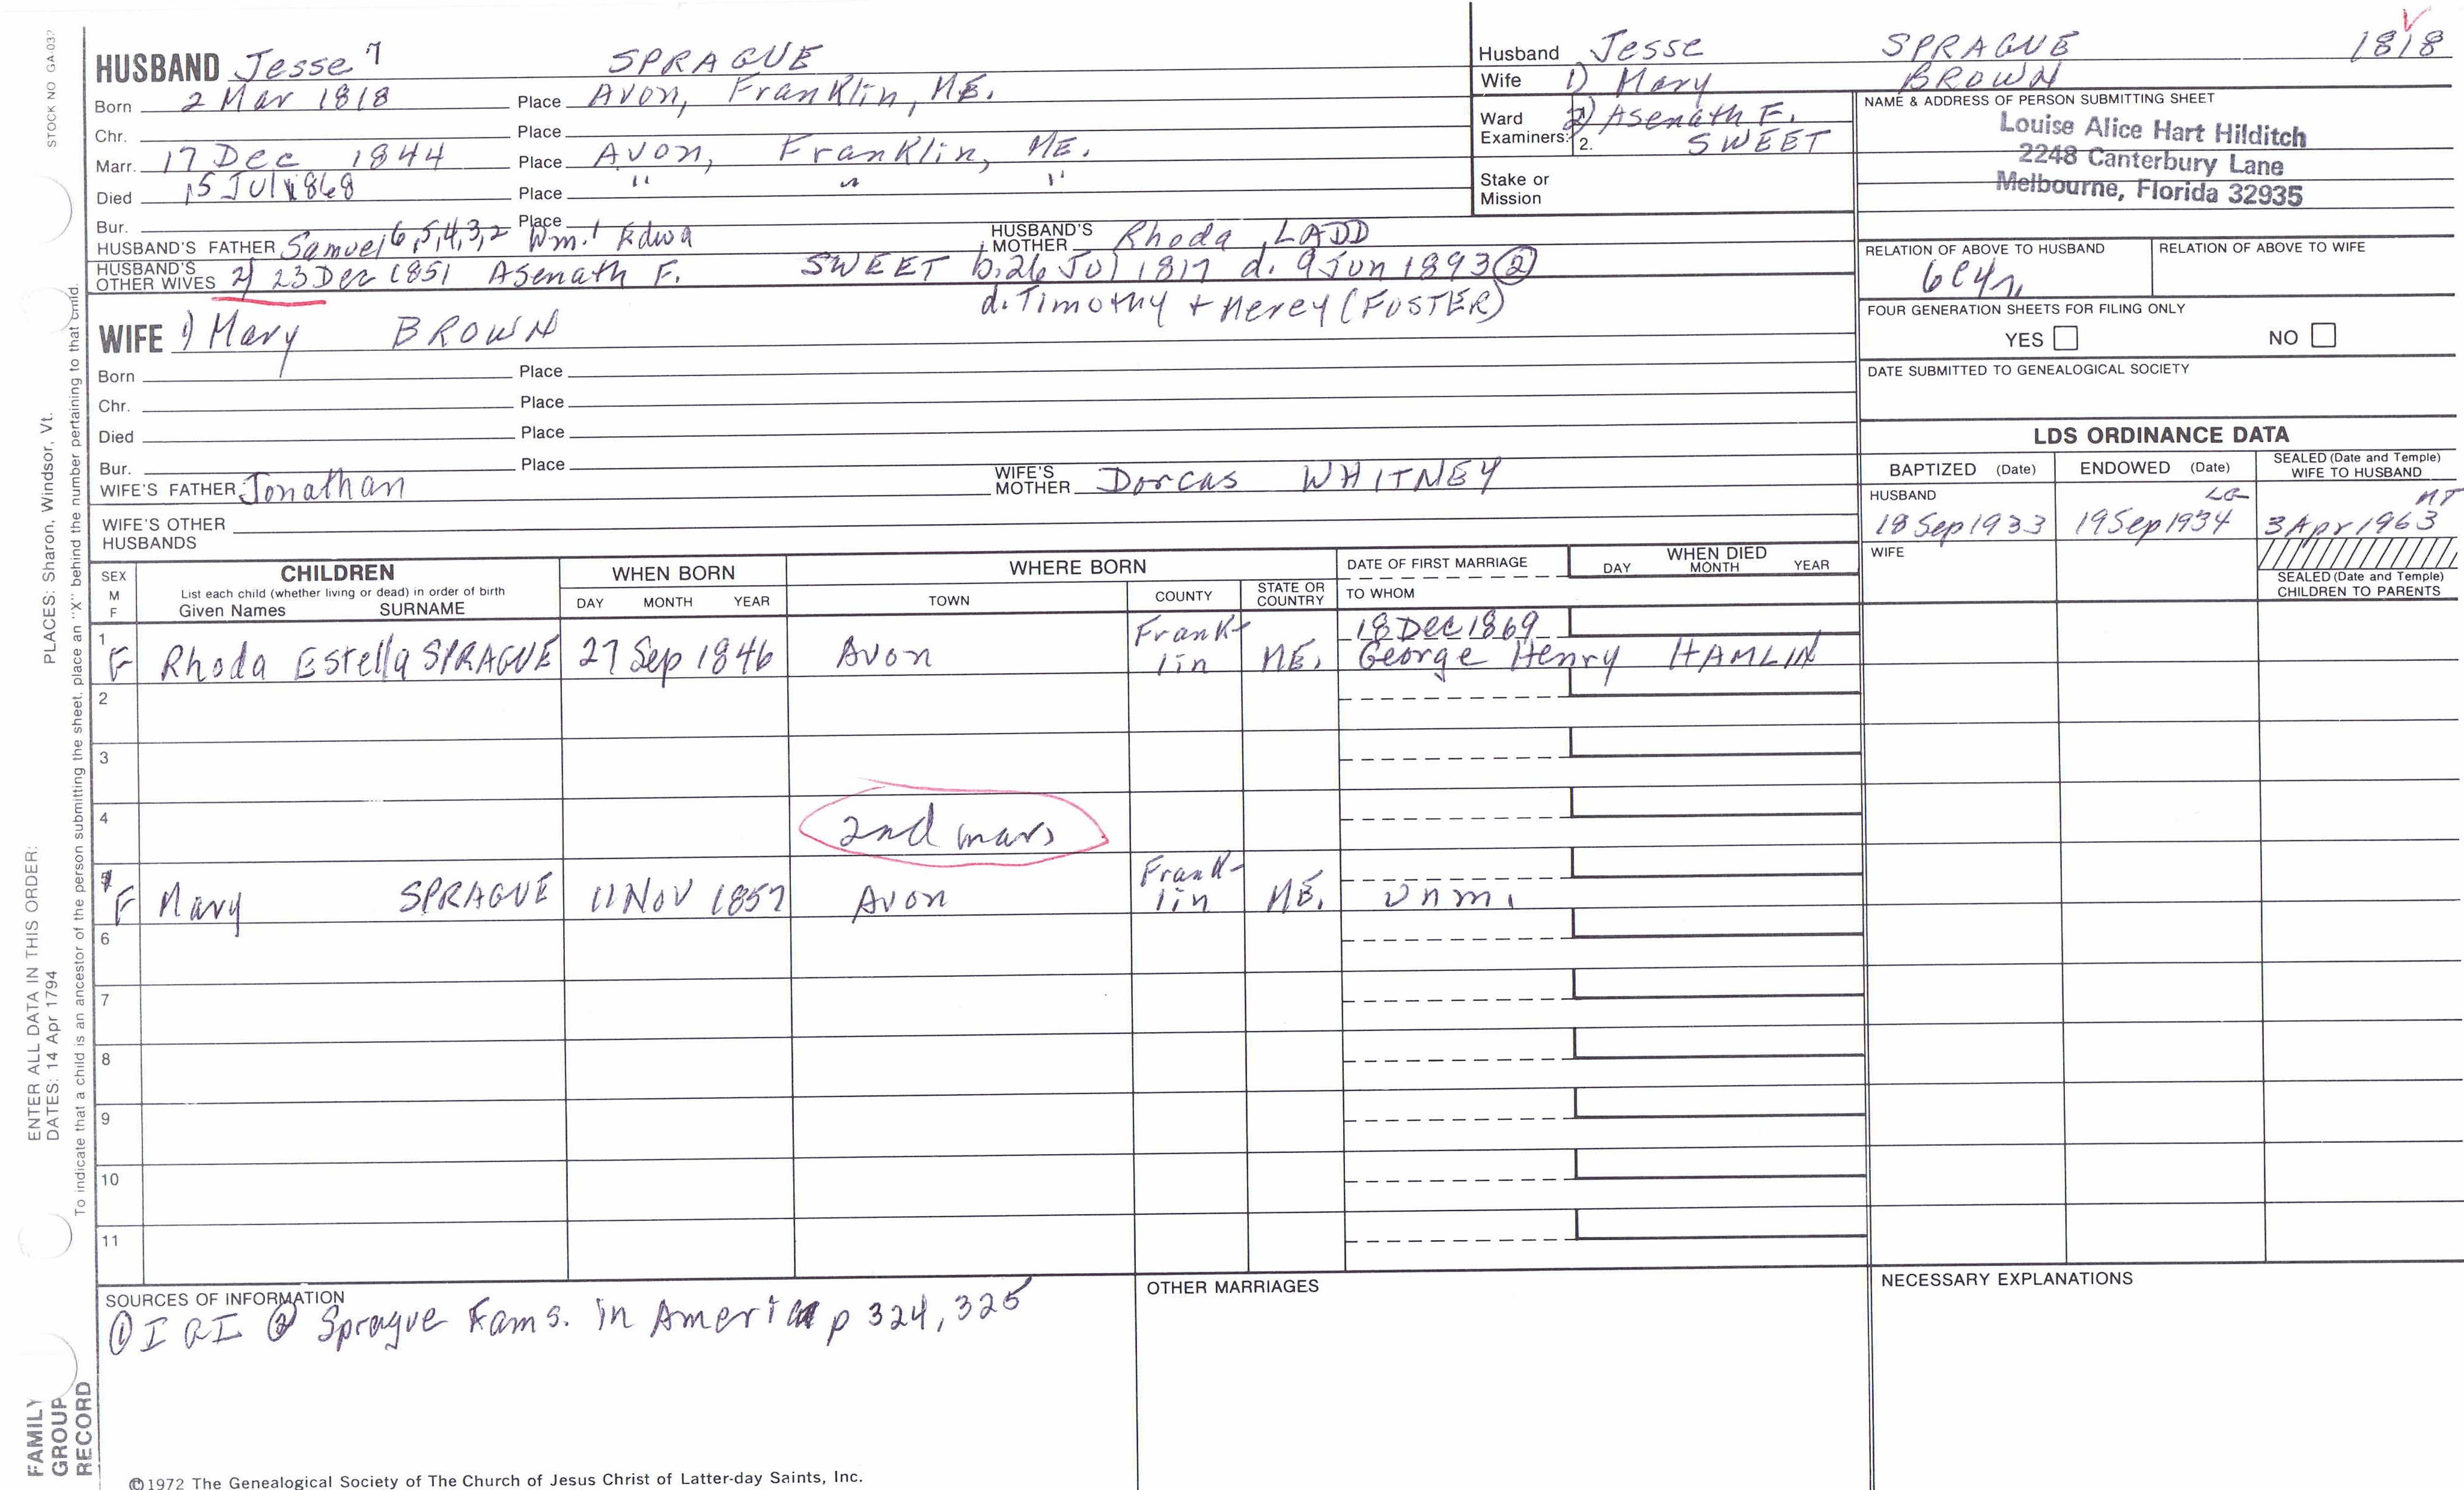 HUSBAND Jesse 7 SPRAGUE
Born 2 Mar 1818 Place Avon, Franklin, ME.
Chr. Place
Marr. 17 Dec 1844 Place Avon, Franklin, ME.
Died 15 Jul 1868 Place " " "
Bur. Place
HUSBAND'S FATHER Samuel 6,5,4,3,2 Wm.1 Edwd HUSBAND'S MOTHER Rhoda LADD
HUSBAND'S OTHER WIVES 2) 23 Dec 1851 Asenath F. SWEET b. 26 Jul 1817 d. 9 Jun 1893 ②
d. Timothy + Mercy (FOSTER)
WIFE 1) Mary BROWN
Born Place
Chr. Place
Died Place
Bur. Place
WIFE'S FATHER Jonathan WIFE'S MOTHER Dorcas WHITNEY
WIFE'S OTHER HUSBANDS
Husband Jesse SPRAGUE 1818
Wife 1) Mary BROWN
Ward Examiners: 2) Asenath F.
2. SWEET
Stake or Mission
NAME & ADDRESS OF PERSON SUBMITTING SHEET
Louise Alice Hart Hilditch
2248 Canterbury Lane
Melbourne, Florida 32935
RELATION OF ABOVE TO HUSBAND RELATION OF ABOVE TO WIFE
6C4r
FOUR GENERATION SHEETS FOR FILING ONLY
YES NO
DATE SUBMITTED TO GENEALOGICAL SOCIETY
LDS ORDINANCE DATA
BAPTIZED (Date) ENDOWED (Date) SEALED (Date and Temple) WIFE TO HUSBAND
HUSBAND LG MT
18 Sep 1933 19 Sep 1934 3 Apr 1963
WIFE
SEALED (Date and Temple) CHILDREN TO PARENTS
SEX M F
CHILDREN
List each child (whether living or dead) in order of birth
Given Names SURNAME
WHEN BORN
DAY MONTH YEAR
WHERE BORN
TOWN COUNTY STATE OR COUNTRY
DATE OF FIRST MARRIAGE
TO WHOM
WHEN DIED
DAY MONTH YEAR
1 F Rhoda Estella SPRAGUE 27 Sep 1846 Avon Frank-lin ME. 18 Dec 1869
George Henry HAMLIN
2
3
4 2nd marr
F Mary SPRAGUE 11 Nov 1857 Avon Frank-lin ME. unm.
6
7
8
9
10
11
SOURCES OF INFORMATION
① IGI ② Sprague Fams. in America p 324, 325
OTHER MARRIAGES
NECESSARY EXPLANATIONS
©1972 The Genealogical Society of The Church of Jesus Christ of Latter-day Saints, Inc.
STOCK NO GA-03
ENTER ALL DATA IN THIS ORDER: PLACES: Sharon, Windsor, Vt.
DATES: 14 Apr 1794
To indicate that a child is an ancestor of the person submitting the sheet, place an "X" behind the number pertaining to that child.
FAMILY
GROUP
RECORD